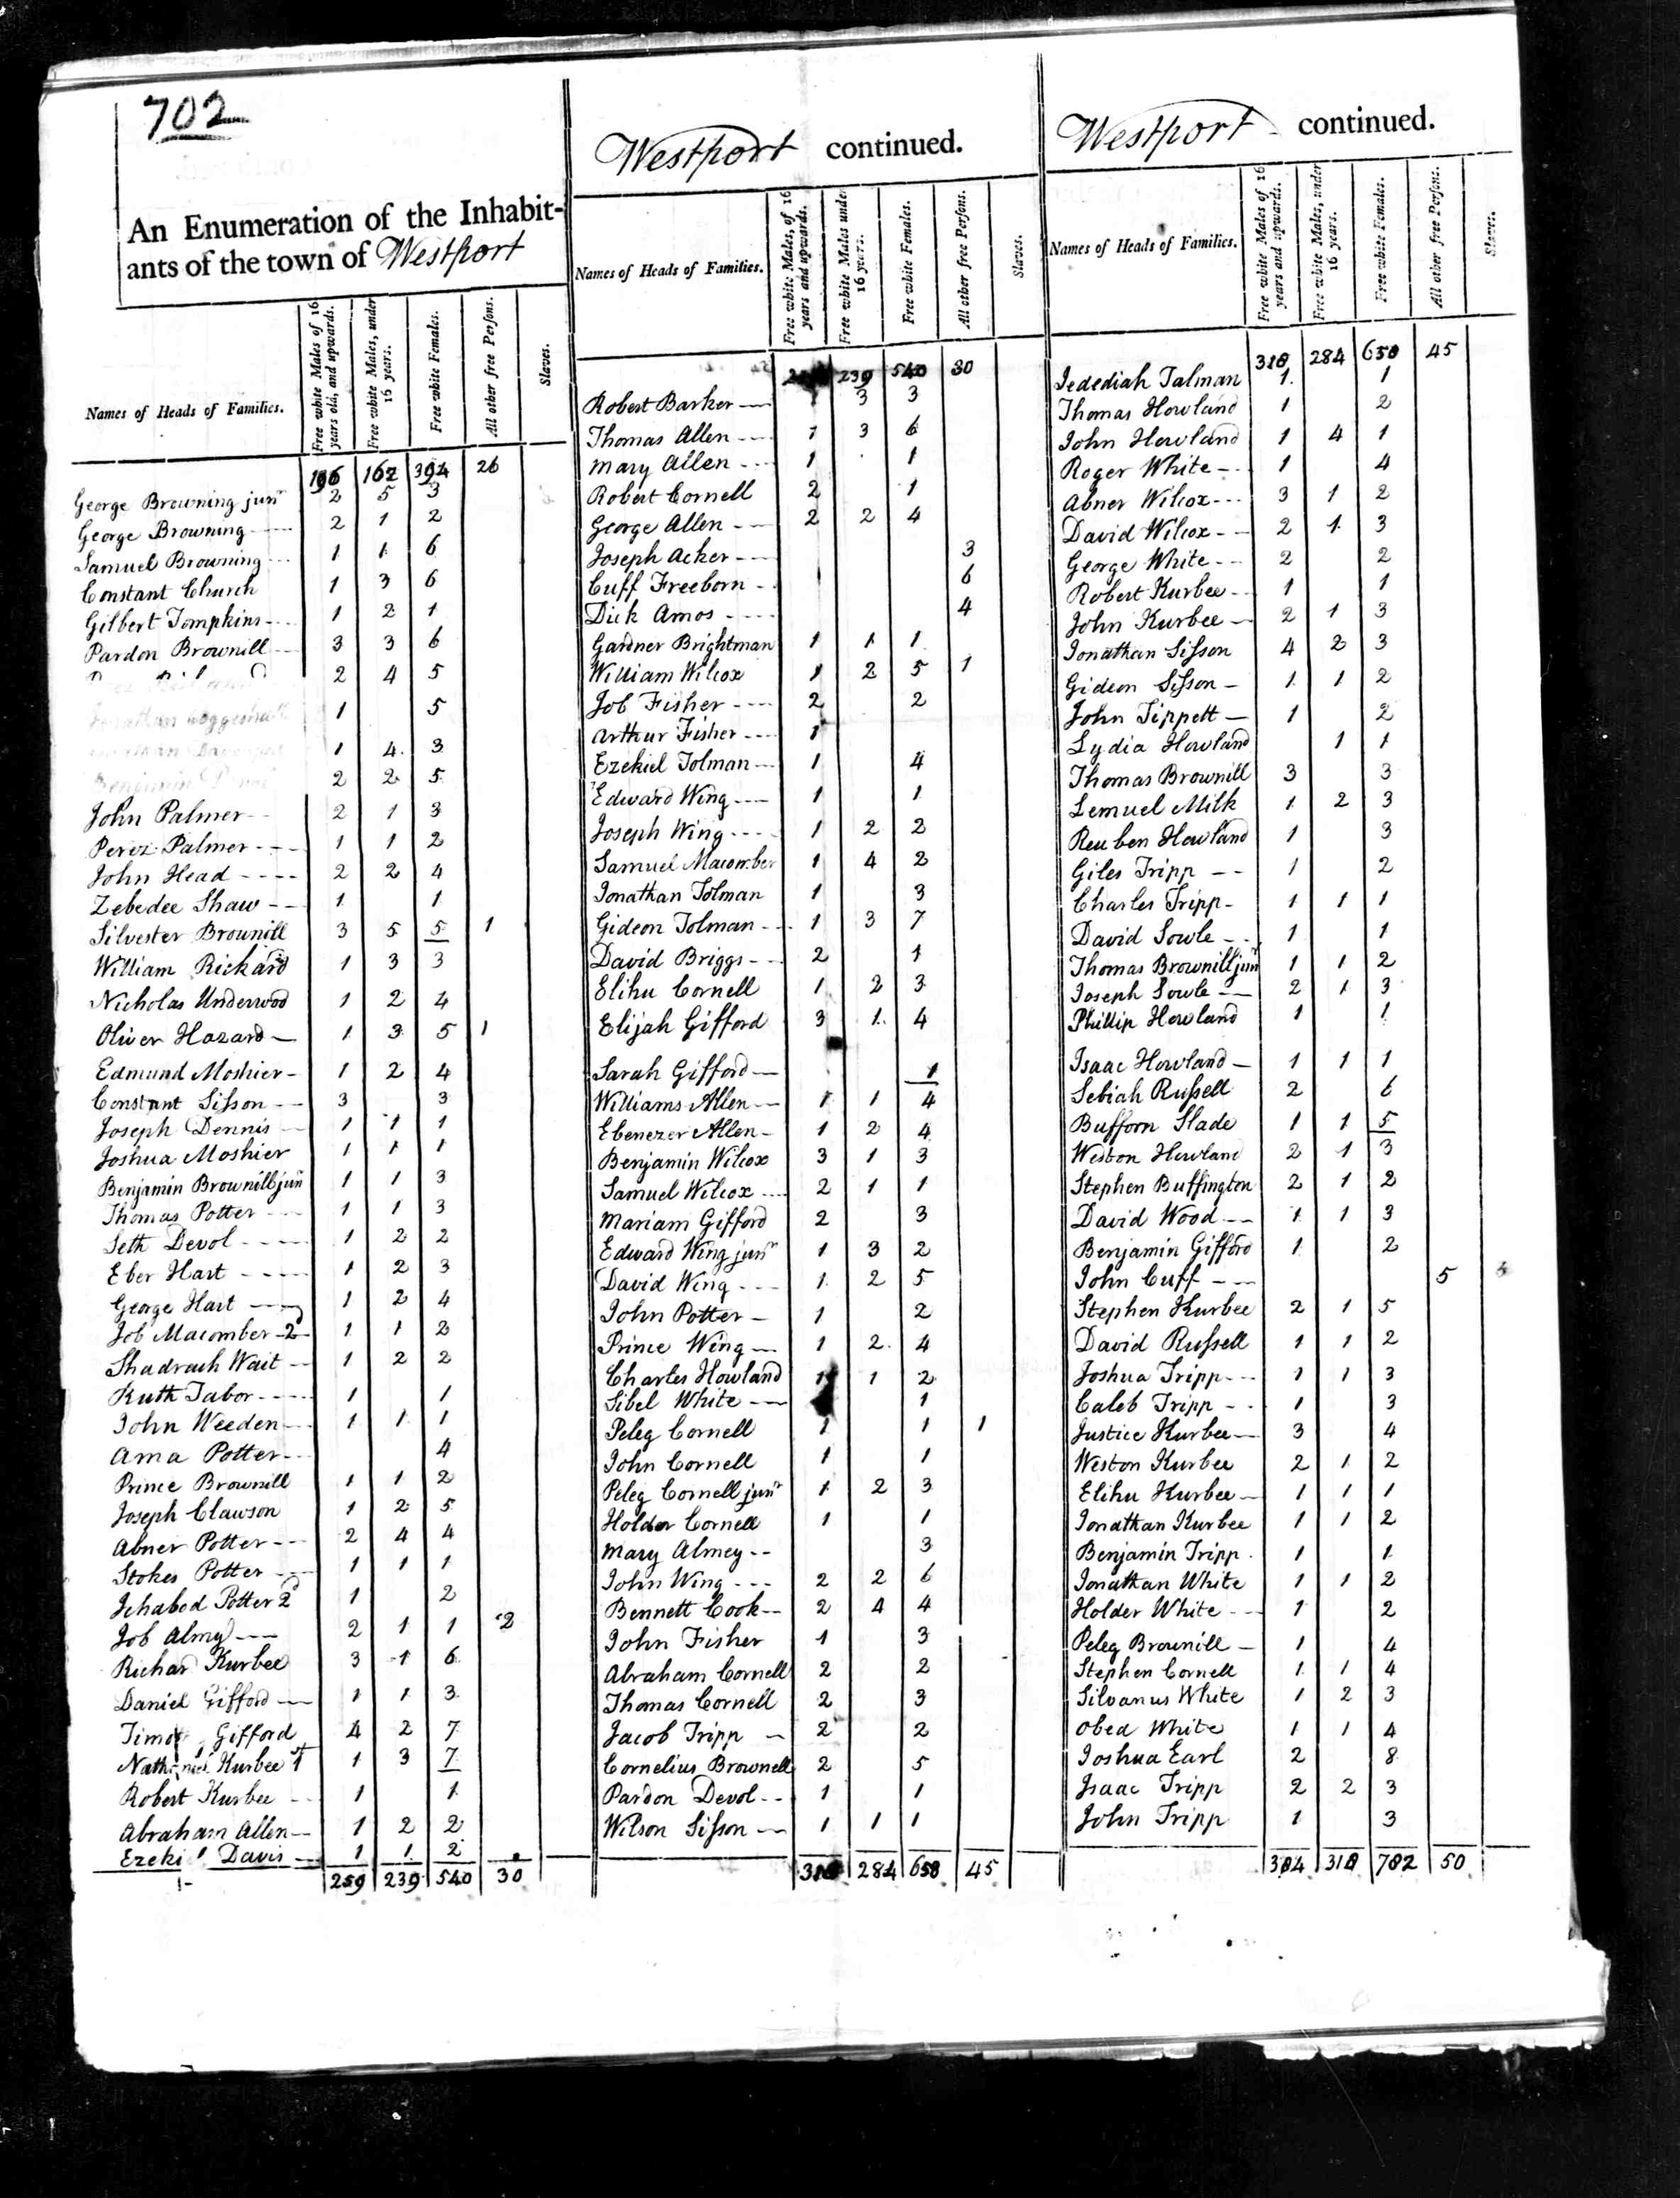 702
An Enumeration of the Inhabit-
ants of the town of Westport
Names of Heads of Families.
Free white Males of 16 years old, and upwards.
Free white Males, under 16 years.
Free white Females.
All other free Persons.
Slaves.
196 162 394 26
George Browning junr 2 5 3
George Browning 2 1 2
Samuel Browning 1 1 6
Constant Church 1 3 6
Gilbert Tompkins 1 2 1
Pardon Brownill 3 3 6
2 4 5
1 5
1 4 3
Benjamin 2 2 5
John Palmer 2 1 3
Perez Palmer 1 1 2
John Head 2 2 4
Zebedee Shaw 1 1
Silvester Brownill 3 5 5 1
William Rickard 1 3 3
Nicholas Underwood 1 2 4
Oliver Hazard 1 3 5 1
Edmund Moshier 1 2 4
Constant Sisson 3 3
Joseph Dennis 1 1 1
Joshua Moshier 1 1 1
Benjamin Brownill junr 1 1 3
Thomas Potter 1 1 3
Seth Devol 1 2 2
Eber Hart 1 2 3
George Hart 1 2 4
Job Macomber 2d 1 1 2
Shadrach Wait 1 2 2
Ruth Tabor 1 1
John Weeden 1 1 1
Ama Potter 4
Prince Brownill 1 1 2
Joseph Clawson 1 2 5
Abner Potter 2 4 4
Stokes Potter 1 1 1
Ichabod Potter 2d 1 2
Job Almy 2 1 1 2
Richard Kurbee 3 1 6
Daniel Gifford 1 1 3
Gifford 4 2 7
Kurbee 1 3 7
Robert Kurbee 1 1
Abraham Allen 1 2 2
Davis 1 1 2
259 239 540 30
Westport continued.
Names of Heads of Families.
Free white Males, of 16 years and upwards.
Free white Males under 16 years.
Free white Females.
All other free Persons.
Slaves.
239 540 30
Robert Barker 3 3
Thomas Allen 1 3 6
Mary Allen 1 1
Robert Cornell 2 1
George Allen 2 2 4
Joseph Acker 3
Cuff Freeborn 6
Dick Amos 4
Gardner Brightman 1 1 1
William Wilcox 1 2 5 1
Job Fisher 2 2
Arthur Fisher 1
Ezekiel Tolman 1 4
Edward Wing 1 1
Joseph Wing 1 2 2
Samuel Macomber 1 4 2
Jonathan Tolman 1 3
Gideon Tolman 1 3 7
David Briggs 2 1
Elihu Cornell 1 2 3
Elijah Gifford 3 1 4
Sarah Gifford 1
Williams Allen 1 1 4
Ebenezer Allen 1 2 4
Benjamin Wilcox 3 1 3
Samuel Wilcox 2 1 1
Mariam Gifford 2 3
Edward Wing junr 1 3 2
David Wing 1 2 5
John Potter 1 2
Prince Wing 1 2 4
Charles Howland 1 1 2
Sibel White 1
Peleg Cornell 1 1 1
John Cornell 1 1
Peleg Cornell junr 1 2 3
Holder Cornell 1 1
Mary Almey 3
John Wing 2 2 6
Bennett Cook 2 4 4
John Fisher 1 3
Abraham Cornell 2 2
Thomas Cornell 2 3
Jacob Tripp 2 2
Cornelius Brownell 2 5
Pardon Devol 1 1
Wilson Sisson 1 1 1
284 650 45
Westport continued.
Names of Heads of Families.
Free white Males of 16 years and upwards.
Free white Males, under 16 years.
Free white Females.
All other free Persons.
Slaves.
318 284 650 45
Jedediah Talman 1 1
Thomas Howland 1 2
John Howland 1 4 1
Roger White 1 4
Abner Wilcox 3 1 2
David Wilcox 2 1 3
George White 2 2
Robert Kurbee 1 1
John Kurbee 2 1 3
Jonathan Sisson 4 2 3
Gideon Sisson 1 1 2
John Tippett 1 2
Lydia Howland 1 1
Thomas Brownill 3 3
Lemuel Milk 1 2 3
Reuben Howland 1 3
Giles Tripp 1 2
Charles Tripp 1 1 1
David Sowle 1 1
Thomas Brownill junr 1 1 2
Joseph Sowle 2 1 3
Phillip Howland 1 1
Isaac Howland 1 1 1
Sebiah Russell 2 6
Bufforn Slade 1 1 5
Weston Howland 2 1 3
Stephen Buffington 2 1 2
David Wood 1 1 3
Benjamin Gifford 1 2
John Cuff 5
Stephen Kurbee 2 1 5
David Russell 1 1 2
Joshua Tripp 1 1 3
Caleb Tripp 1 3
Justice Kurbee 3 4
Weston Kurbee 2 1 2
Elihu Kurbee 1 1 1
Jonathan Kurbee 1 1 2
Benjamin Tripp 1 1
Jonathan White 1 1 2
Holder White 1 2
Peleg Brownill 1 4
Stephen Cornell 1 1 4
Silvanus White 1 2 3
Obed White 1 1 4
Joshua Earl 2 8
Isaac Tripp 2 2 3
John Tripp 1 3
384 318 782 50